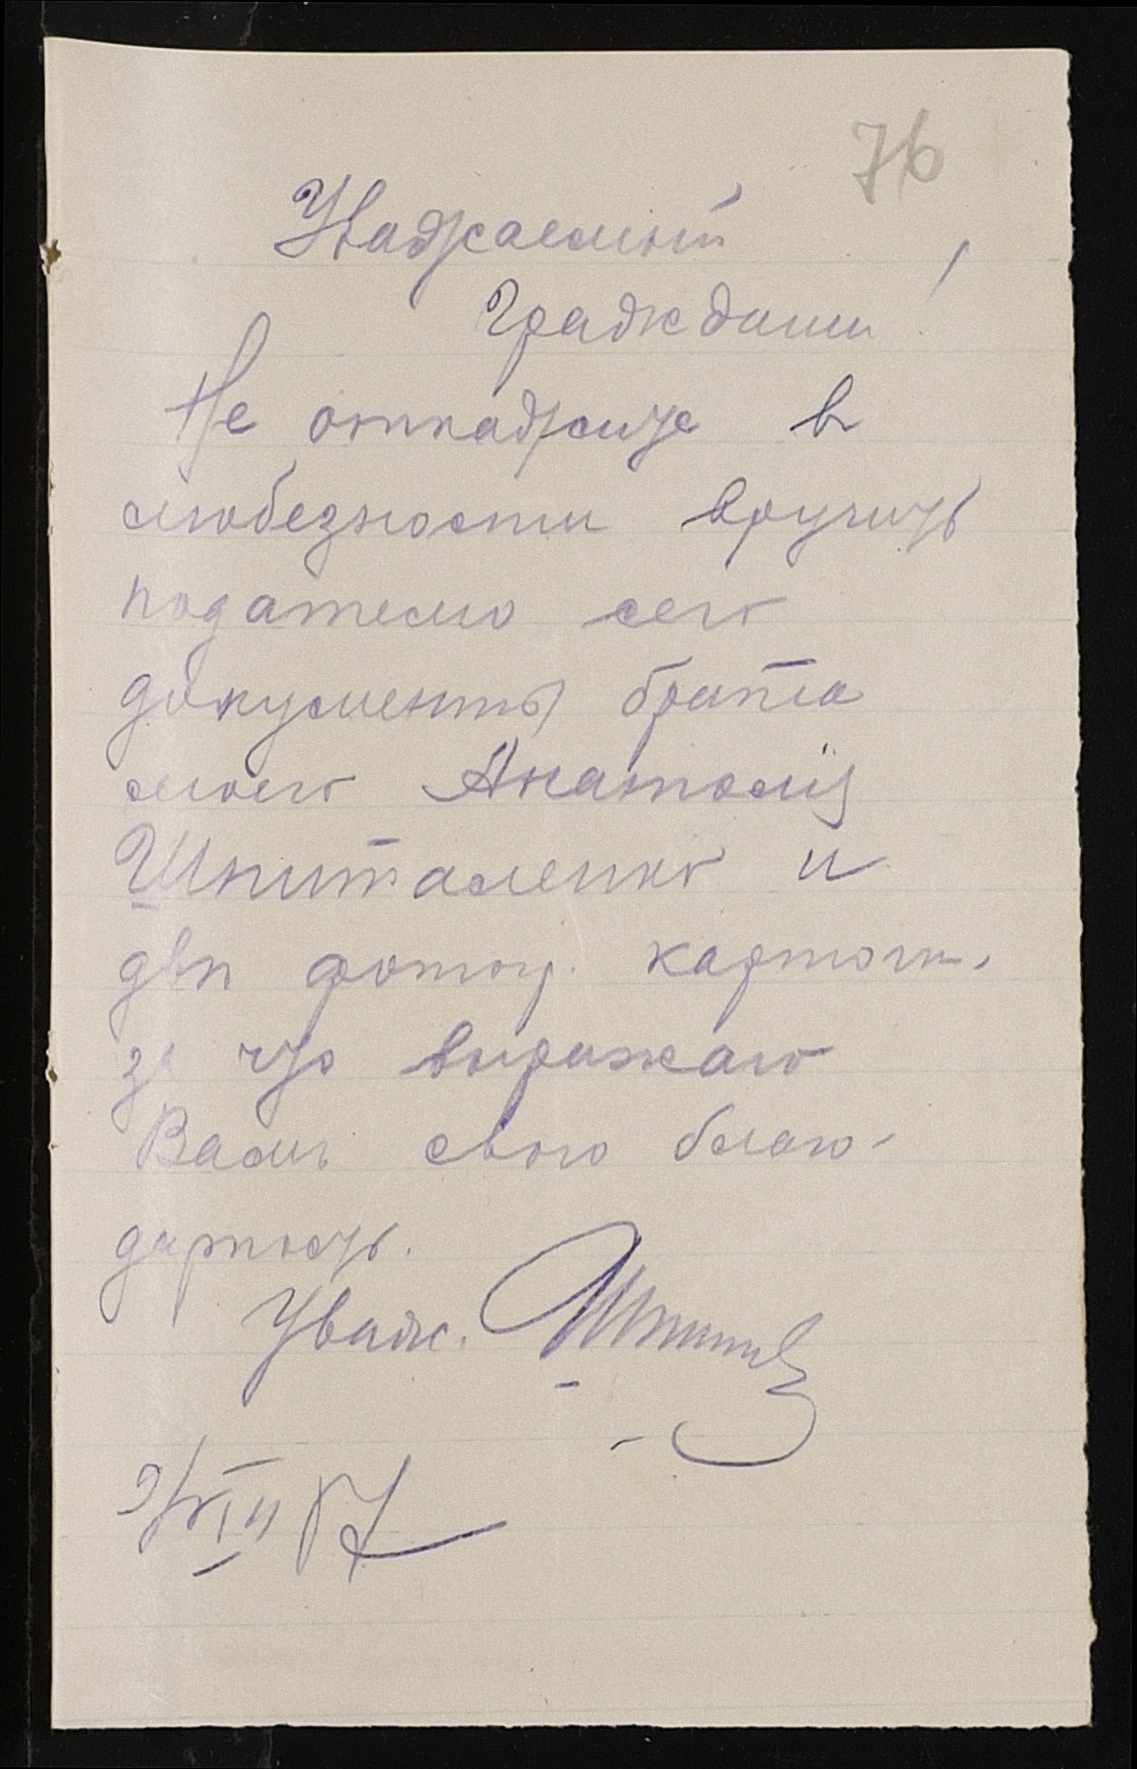 76
Уважаемый
Гражданин!
Не откажите в
любезности вручить
подателю сего
документы брата
моего Анатолія
Шпиталенко и
двѣ фотогр. карточк.
за что выражаю
Вамъ свою благо-
дарность.
Уваж.